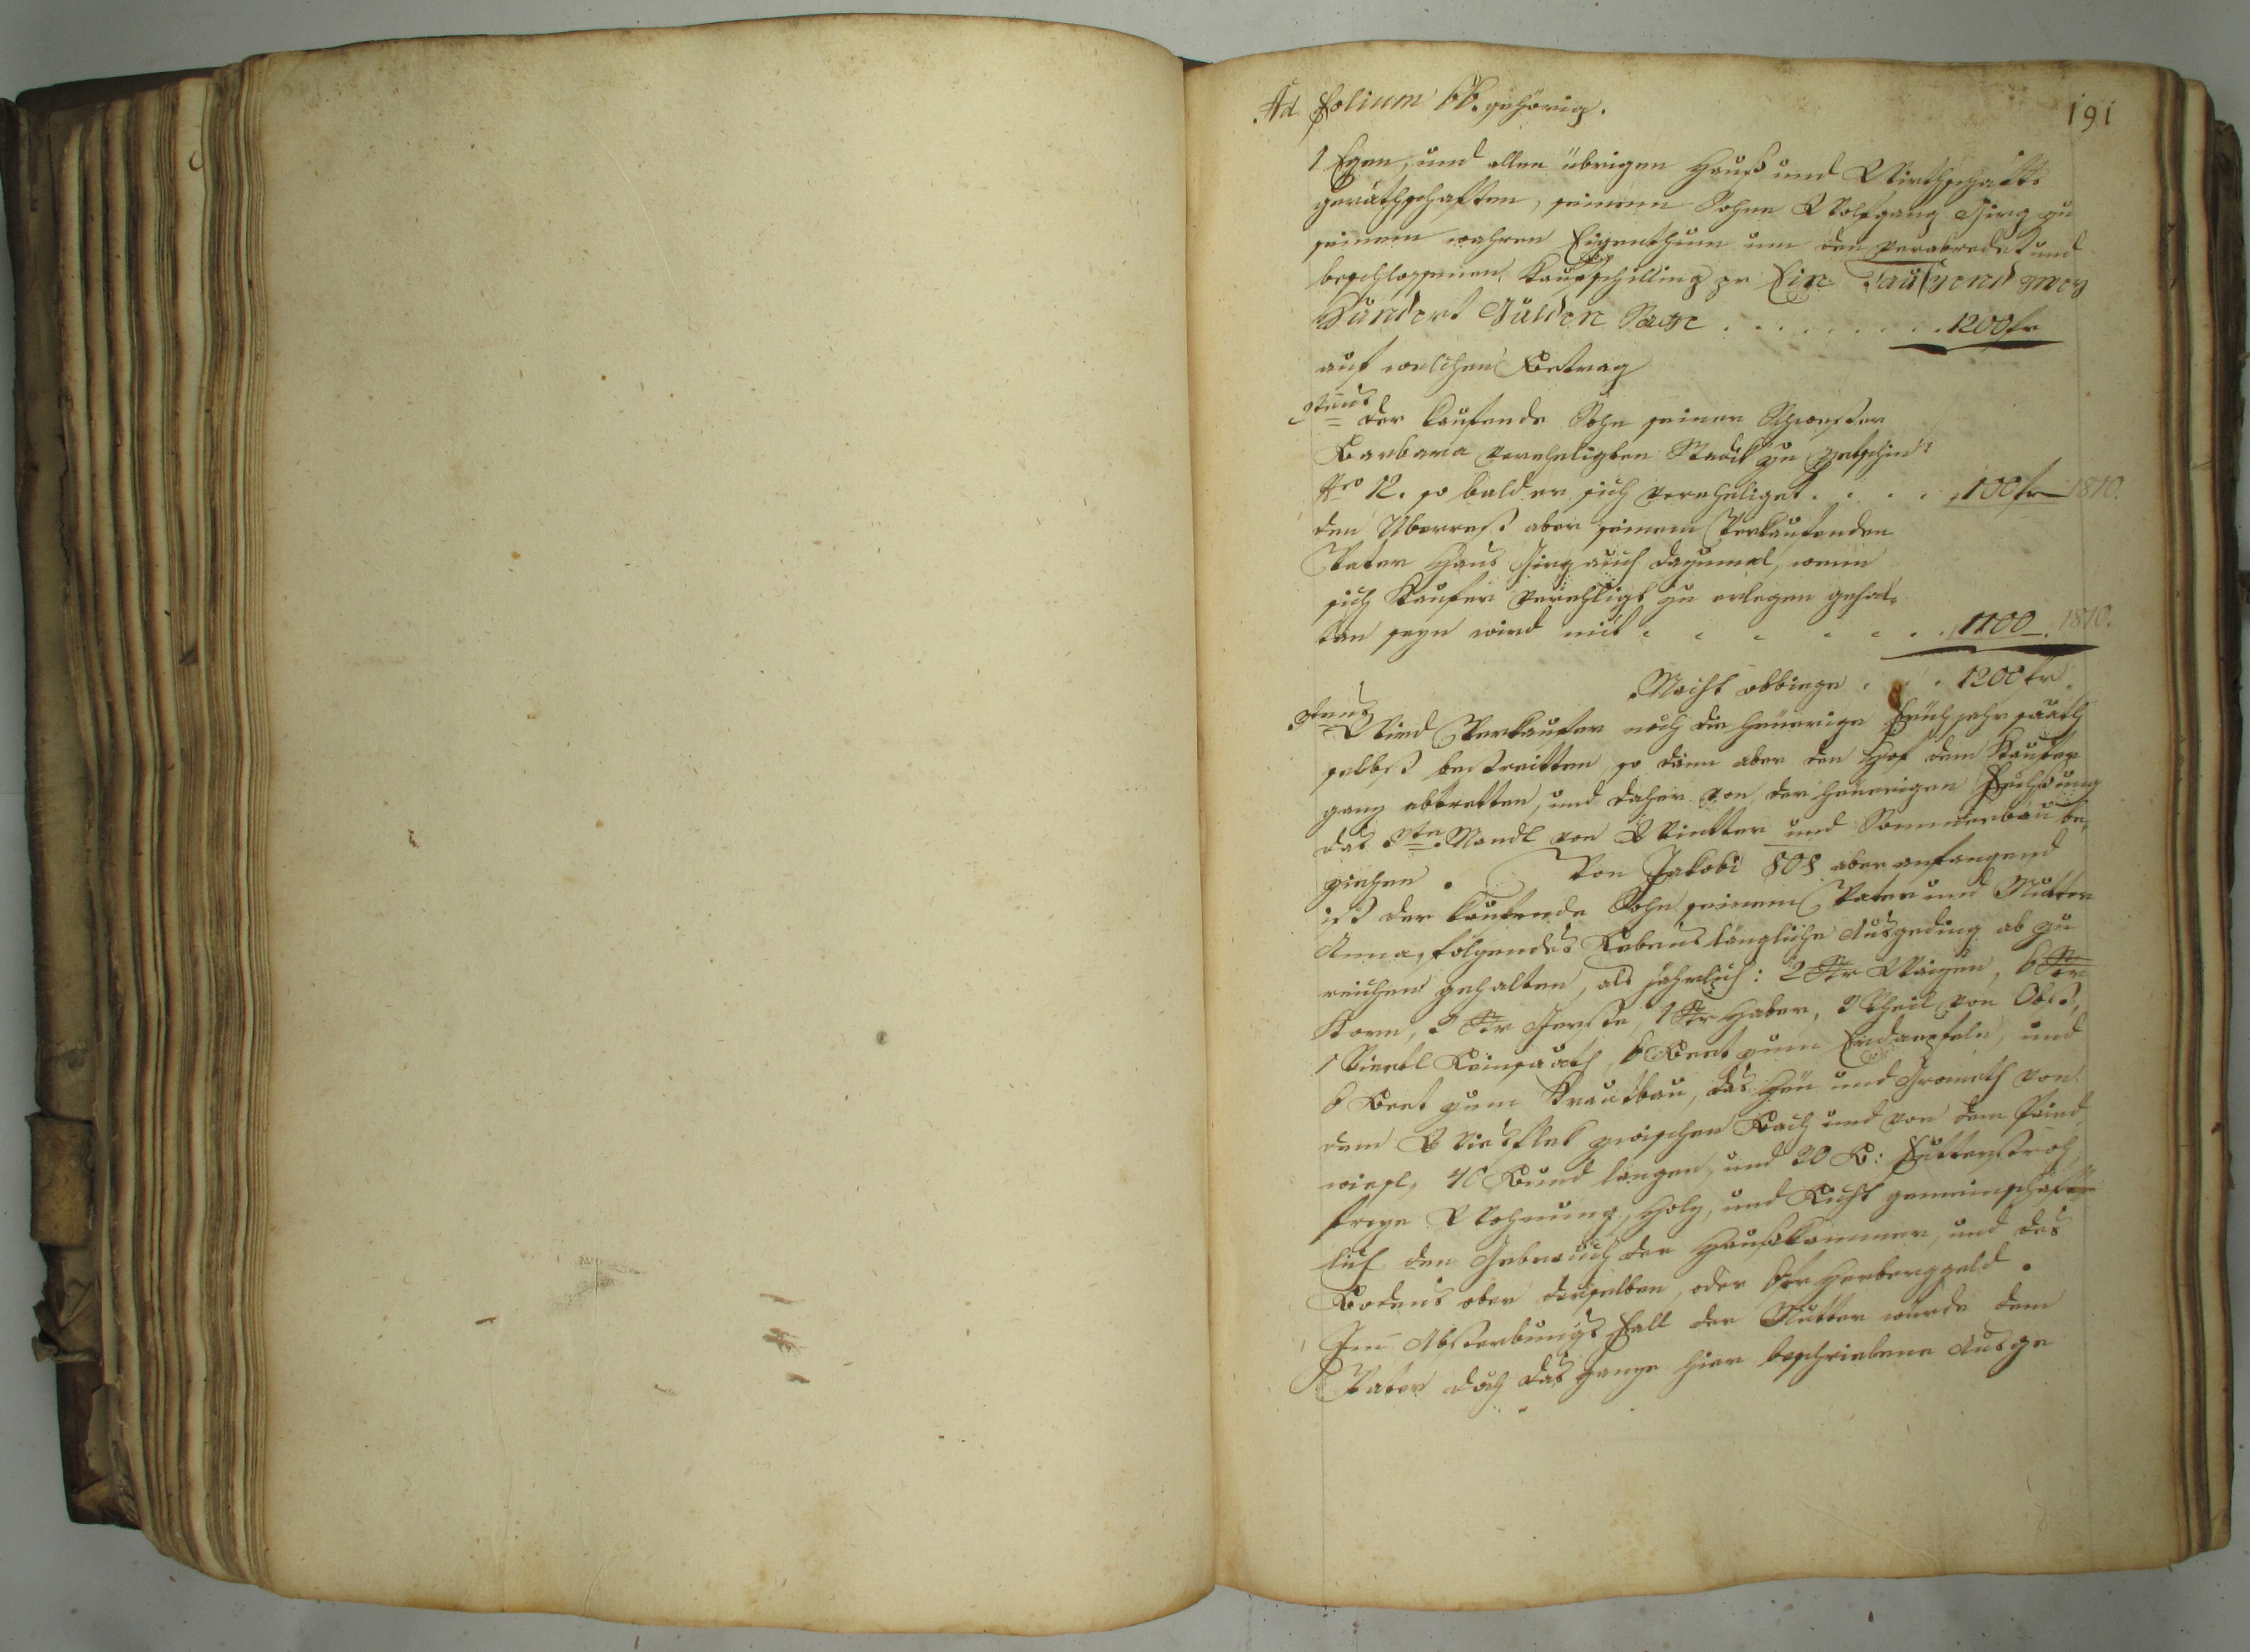 Ad Folium 66. gehörig.
191
1 Egen, und allen übrigen Hauß und Wirthschafts
geräthschaften, seinem Sohne Wolfgang Jirg zu
seinem wahren Eigenthum um den verabredet und
beschlossenen Kaufschilling pr Ein Tausend zwey
Hundert Gulden Sage . . . . . . . . 1200 fr
auf welchen Betrag
2tens
der kaufende Sohn seiner Schwester
Barbara verehligten Stadik zu
Nro 12. so bald er sich verehliget . . . . 100 fr 1810.
den Uberrest aber seinem Verkaufenden
Vater Hans Jirg auch dazumal, wenn
sich Kaufer verehligt zu erlegen gehal-
ten seyn wird mit . . . . . . . 1100 . 1810.
Macht obbiege . . . 1200 fr
3tens
Wird Verkaufer noch die heuerige Fruhjahr saath
selbst bestreitten so dann aber den Hof dem Kaufer
ganz abtretten, und daher von der heuerigen Fechsung
das 3te Mandl von Wintter und Sommerbau be-
ziehen. Von Jakobi 808 aber anfangend
ist der kaufende Sohn seinem Vater und Mutter
Anna, folgendes Lebens längliche Ausgeding ab zu
reichen gehalten, als jährlich: 2 Str Waizen, 6 Str
Korn, 2 Str Gerste, 1 Str Haber, Theil von Obst,
1 Viertl Leinsaath, 6 Beet zum Erdaepfeln, und
6 Beet zum Krautbau, das Heu und Grometh von
dem Wiesflek zwischen Bach und von dem
wiesl, 40 Bund langes, und 20 B: Futterstroh,
freye Wohnung, Holz, und Licht gemeinschaft-
lich den Gebrauch der Haußkammer, und des
Bodens ober derselben, oder 6 fr Herberggeld.
Im Absterbungs Fall der Mutter wurde dem
Vater doch das ganze hier beschriebene Ausge